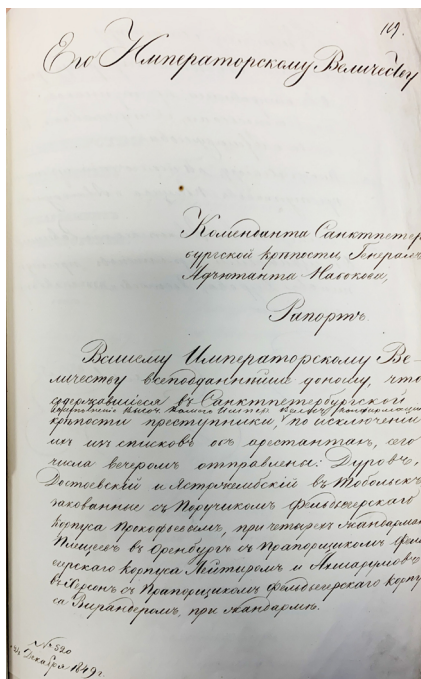 109.
Его Императорскому Величеству
Коменданта Санктпетер
бургской крѣпости, Генералъ
Адъютанта Набокова,
Рапортъ.
Вашему Императорскому Ве-
личеству всеподданнѣйше доношу, что
содержавшіеся въ Санктпетербургской
Высоч.
крѣпости преступники, по исключеніи
ихъ изъ списковъ объ арестантахъ, сего
числа вечеромъ отправлены: Дуровъ,
Достоевскій и Ястржембскій въ Тобольскъ
закованные съ Поручикомъ Фельдъегерскаго
Корпуса Прокофьевымъ, при четырехъ жандармах
Плещеев въ Оренбургъ съ Прапорщикомъ фель
егерскаго корпуса Лейтиромъ и Ахшарумовъ
въ Херсонъ съ Прапорщикомъ Фельдъегерскаго корпу
са Вирандеромъ, при жандармѣ.
№ 520
Декабря 1849 г.